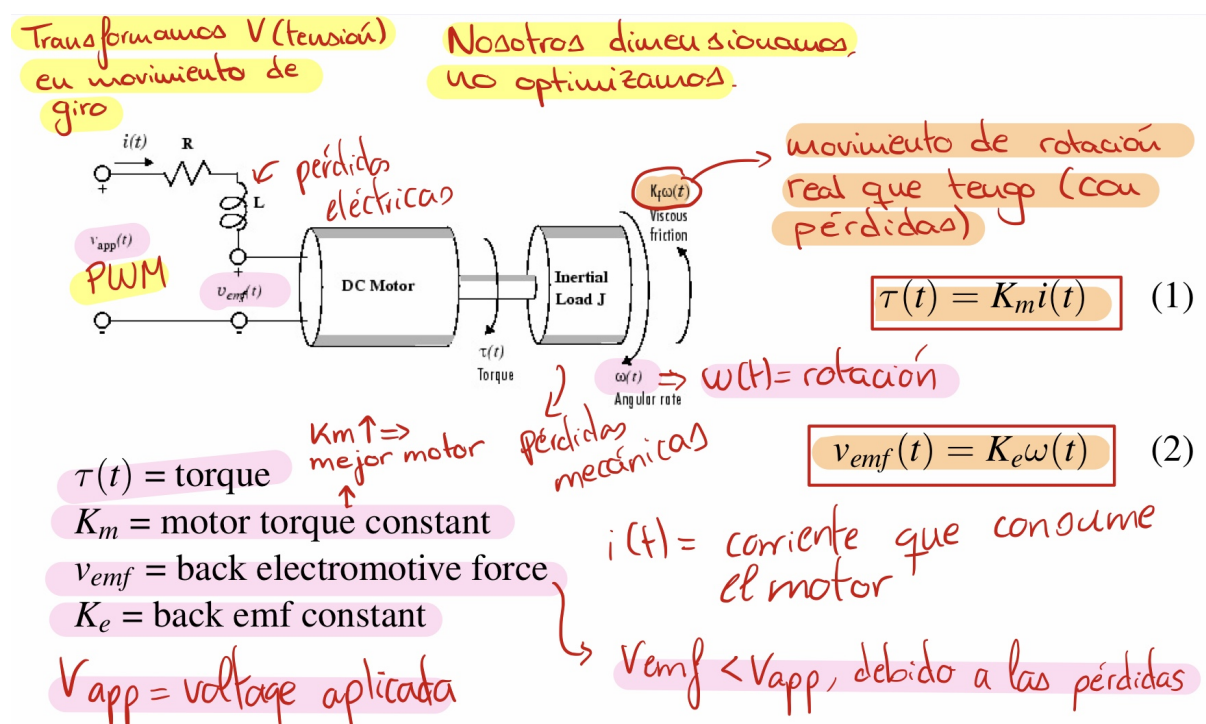 Transformamos V (tensión)
en movimiento de
giro
Nosotros dimensionamos,
no optimizamos.
i(t)
R
+
L
pérdidas
eléctricas
v_app(t)
PWM
+
v_emf(t)
DC Motor
τ(t)
Torque
Inertial
Load J
K_f ω(t)
Viscous
friction
movimiento de rotación
real que tengo (con
pérdidas)
τ(t) = K_m i(t) (1)
ω(t)
Angular rate
⇒ ω(t) = rotación
pérdidas
mecánicas
v_emf(t) = K_e ω(t) (2)
Km ↑ ⇒
mejor motor
τ(t) = torque
K_m = motor torque constant
v_emf = back electromotive force
K_e = back emf constant
V_app = voltage aplicada
i(t) = corriente que consume
el motor
Vemf < Vapp, debido a las pérdidas